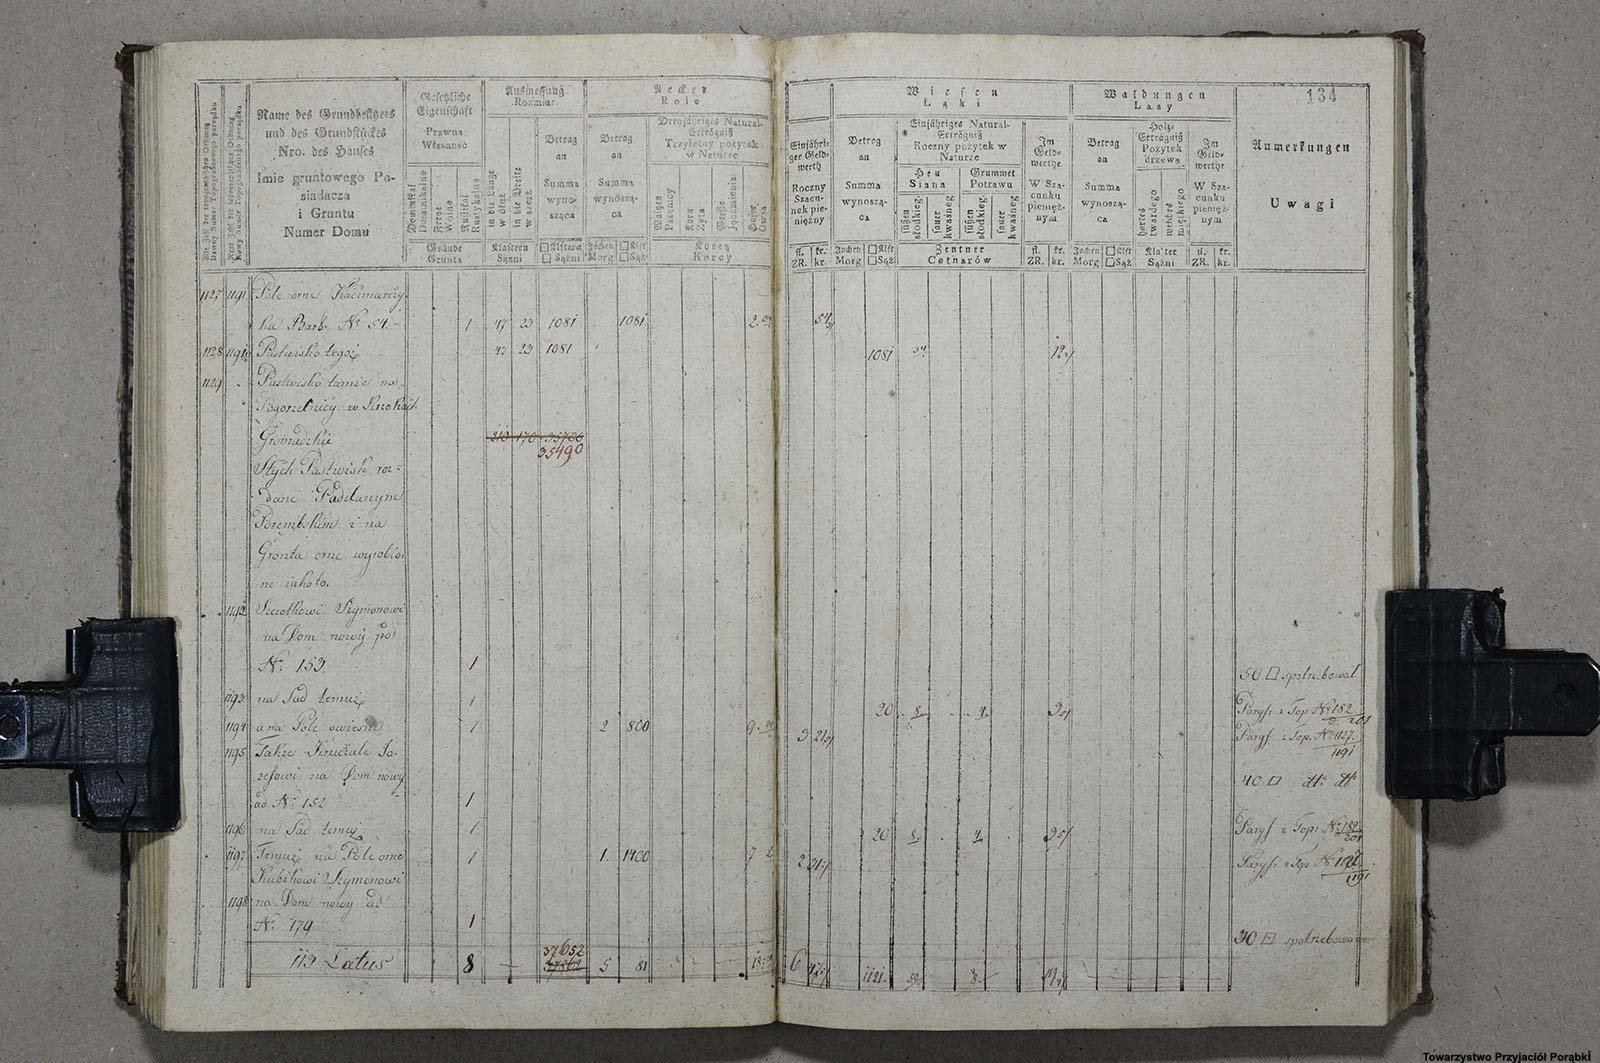 134
Alte Zahl der topographischen Ordnung
Dawny Numer Topograficznego porządku
Neue Zahl der topographischen Ordnung
Nowy Numer Topograficznego porządku
Name des Grundbesitzers
und des Grundstückes
Nro. des Hauses
Imie gruntowego Po-
siadacza
i Gruntu
Numer Domu
Gesetzliche
Eigenschaft
Prawna
Własność
Dominikal
Dominikalne
Freye
Wolne
Rustikal
Rustykalne
Gründe
Grunta
Ausmessung
Rozmiar
in die Länge
w dłuż
in die Breite
w szerz
Klaftern
Sążni
Betrag
an
Summa
wyno-
sząca
□ Klftern
□ Sążni
Aecker
Pole
Betrag
an
Summa
wynoszą-
ca
Jochen □ Klft
Morg □ Sąż
Dreyjähriges Natural-
Erträgniß
Trzyletny pożytek
w Naturze
Waitzen
Pszenicy
Korn
Żyta
Gerste
Jęczmienia
Haber
Owsa
Korez
Korcy
Einjähri-
ger Geld-
werth
Roczny
Szacu-
nek pie-
niężny
fl. kr.
ZR. kr.
Wiesen
Łąki
Betrag
an
Summa
wynoszą-
ca
Jochen □ Klft
Morg □ Sąż
Einjähriges Natural-
Erträgniß
Roczny pożytek w
Naturze
Heu
Siana
Grummet
Potrawu
süßen
słodkieg.
sauer
kwaśneg
süßen
słodkieg.
sauer
kwaśneg
Zentner
Cetnarów
Im
Geld-
werthe
W Sza-
cunku
pienięż-
nym
fl. kr.
ZR. kr.
Waldungen
Lasy
Betrag
an
Summa
wynoszą-
ca
Jochen □ Klft
Morg □ Sąż
Holz-
Erträgniß
Pożytek
drzewa
hartes
twardego
weiches
miękkiego
Klafter
Sążni
Im
Geld-
werthe
W Sza-
cunku
pienięż-
nym
fl. kr.
ZR. kr.
Anmerkungen
Uwagi
1127 1191 Pole orne Kaczmarczy-
ka Barb. No 54. 1 47 23 1081 1081 2. 54
1128 Pastwisko tegoż 47 23 1081 1081 12
1129 Pastwisko tamże na
Pogorzelnicy w
Gromadzkie 210 170 35700
35490
Pastwisk roz-
dane Poddanym
Porembskim i na
Gronta orne wyrobio-
ne iako to.
1192 Szczotkowi Szymonowi
na Dom nowy po
No. 153. 1 50 □ spotrzebował
1193 na Sad temuż 1 20 8 4 Top No 182
201
1194 a na Pole owiesne 1 2 800 9 3 21 Top. No 1127.
1191
1195 Także Jo-
zefowi na Dom nowy
ad No 152 1 40 □ dto dto
1196 na Sad temuż 1 20 8 4 Top. No 182
201
1197 Temuż na Pole orne 1 1. 1400 7 2 31 Top No 1127
1191
Kubikowi Szymonowi
1198 na Dom nowy ad
No. 179 1 30 □ spotrzebowano
Latus 8 37652 5 81 6 1121.